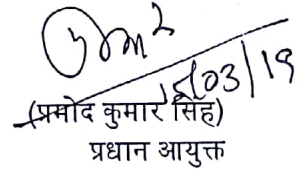 15/03/19
(प्रमोद कुमार सिंह)
प्रधान आयुक्त